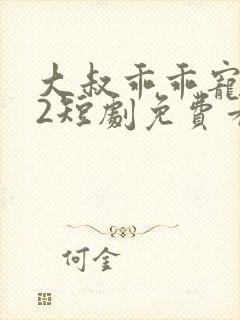 大叔乖乖寵
2短劇免費
何金